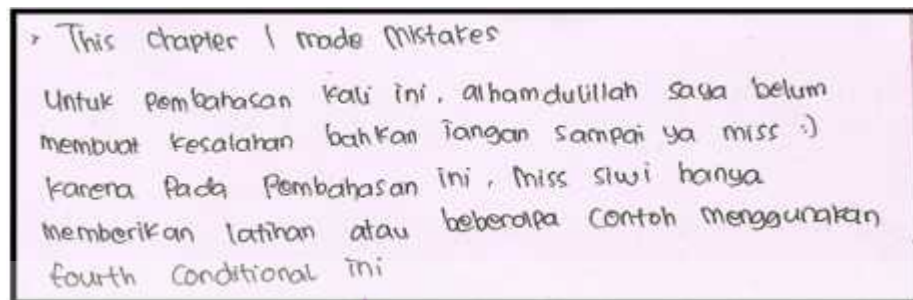 > This chapter I made mistakes
Untuk pembahasan kali ini, alhamdulillah saya belum
membuat kesalahan bahkan jangan sampai ya miss :)
karena pada pembahasan ini, miss siwi hanya
memberikan latihan atau beberapa contoh menggunakan
fourth conditional ini